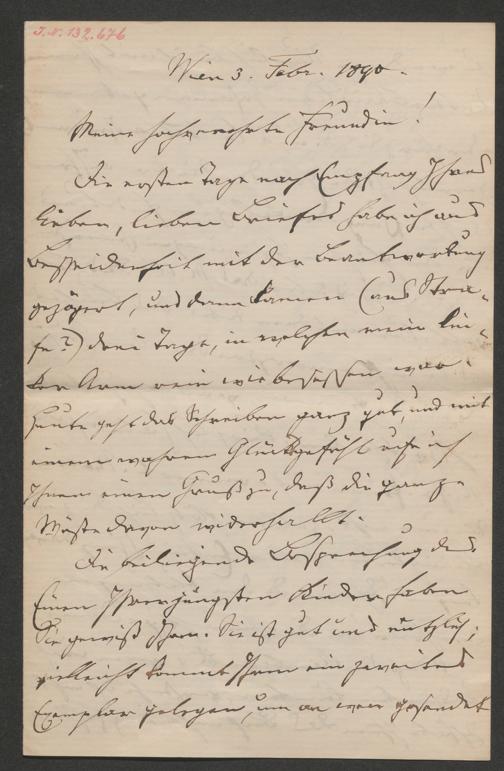 J.N. 132.676
Wien 3. Febr. 1890.
Meine hochverehrte Freundin!
Die ersten Tage nach Empfang Ihres
lieben, lieben Briefes habe ich aus
Bescheidenheit mit der Beantwortung
gezögert, und dann kamen (aus Stra-
fe?) drei Tage, in welchen mein lin-
ker Arm wie besessen war.
Heute geht das Schreiben ganz gut, und mit
einem wahren Glücksgefühl rufe ich
Ihnen einen Gruß zu, daß die ganze
Wüste davon widerhallt.
Die beiliegende Besprechung des
Einen Ihrer jüngsten Kinder haben
Sie gewiß schon. Sie ist gut und nützlich;
vielleicht kommt Ihnen ein zweites
Exemplar gelegen, um an wen gesendet